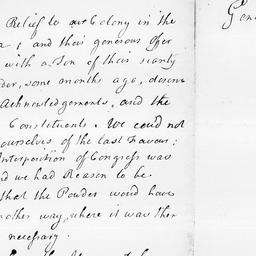 Relief to our Colony in the
; and their generous Offer
with a Ton of their scanty
some months ago, deserve
Acknowledgements, and the
Constituents. We could not
ourselves of the last Favour;
Interposition of Congress was
and we had Reason to be
that the Powder would have
another way, where it was then
necessary.